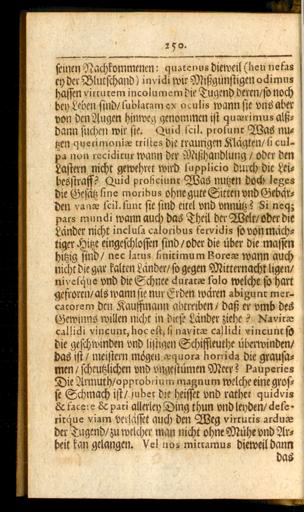 250.
seinen Nachkommenen: quatenus dieweil (heu nefas
ey der Blutschand) invidi wir Mißgünstigen odimus
hassen virtutem incolumem die Tugend deren/ so noch
bey Leben sind/ sublatam ex oculis wann sie vns aber
von den Augen hinweg genommen ist quærimus alß-
dann suchen wir sie. Quid scil. prosunt Was nu-
tzen querimoniæ tristes die traurigen Klägten/ si cul-
pa non reciditur wann der Mißhandlung / oder den
Lastern nicht gewehret wird supplicio durch die Lei-
besstraff? Quid proficiunt Was nutzen doch leges
die Gesätz sine moribus ohne gute Sitten vnd Gebär-
den vanæ scil. sunt sie sind eitel vnd vnnütz? Si neq;
pars mundi wann auch das Theil der Welt/ oder die
Länder nicht inclusa caloribus fervidis so von mäch-
tiger Hitz eingeschlossen sind/ oder die über die massen
hitzig sind/ nec latus finitimum Boreæ wann auch
nicht die gar kalten Länder/ so gegen Mitternacht ligen/
nivesque vnd die Schnee duratæ solo welche so hart
gefroren/ als wann sie nur Erden wären abigunt mer-
catorem den Kauffmann abtreiben / daß er vmb des
Gewinns willen nicht in diese Länder ziehe? Navitæ
callidi vincunt, hoc est, si navitæ callidi vincunt so
die geschwinden vnd listigen Schiffleuthe überwinden/
das ist / meistern mögen æquora horrida die grausa-
men / scheutzlichen vnd vngestümen Meer? Pauperies
Die Armuth/ opprobrium magnum welche eine gros-
se Schmach ist/ jubet die heisset vnd rathet quidvis
& facere & pati allerley Ding thun vnd leyden/ dese-
ritque viam verlässet auch den Weg virtutis arduæ
der Tugend/ zu welcher man nicht ohne Mühe vnd Ar-
beit kan gelangen. Vel nos mittamus dieweil dann
das